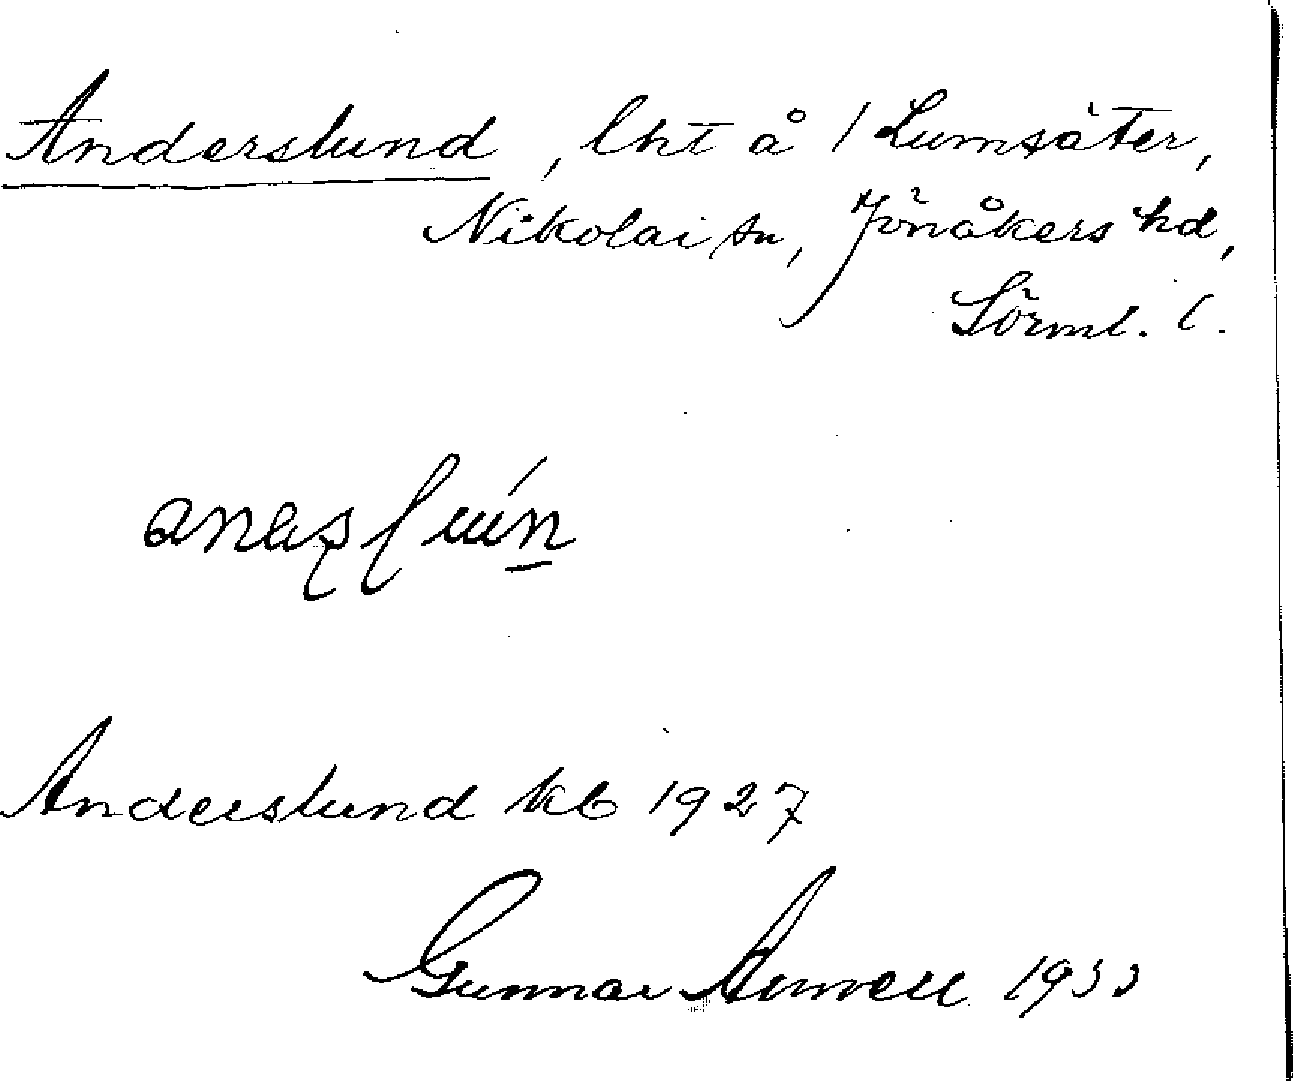 Anderslund, lht å 1 Lumsäter,
Nikolai sn, Jönåkers hd,
Sörml. l.
Anderslund kb 1927
Gunnar 1933